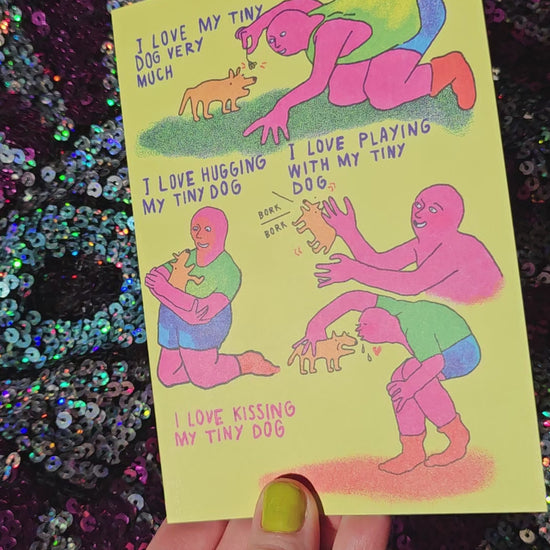 I LOVE MY TINY
DOG VERY
MUCH
I LOVE HUGGING
MY TINY DOG
I LOVE PLAYING
WITH MY TINY
DOG
BORK
BORK
I LOVE KISSING
MY TINY DOG